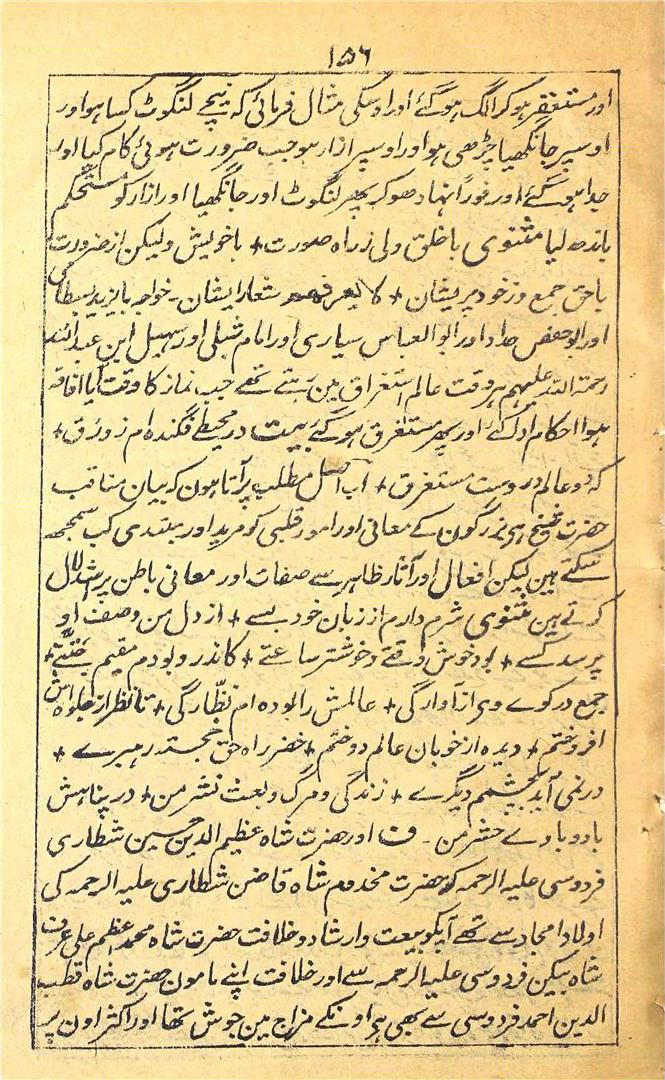 ۱۵۶
اور مستغفر ہوکر الگ ہوگئے اور اوسکی مثال فرمائی کہ نیچے لنگوٹ کسا ہوا اور
اوسپر جانگھیا چڑھی ہو اور اوسپر ازار ہو جب ضرورت ہوئی کام کیا اور
جدا ہوگئے اور فوراً نہا دھوکر پھر لنگوٹ اور جانگھیا اور ازار کو مستحکم
باندھ لیا مثنوی باخلق ولی ز راہ صورت + باخویش ولیکن از ضرورت
باحق جمع وز خود پریشان + شعار ایشان۔ خواجہ بایزید بسطامی
اور ابوحفص حداد اور ابوالعباس سیاری اور امام شبلی اور سہیل ابن عبداللہ
رحمۃ اللہ علیہم ہر وقت عالم استغراق مین رہتے تھے جب نماز کا وقت آیا افاقہ
ہوا احکام ادا کئے اور پھر مستغرق ہوگئے بیت در محیطے فگندہ ام زورق +
کہ دو عالم دروست مستغرق + اب اصل مطلب پر آتا ہون کہ بیان مناقب
حضرت ہی بزرگون کے معانی اور امور قلبی کو مرید اور مبتدی کب سمجھ
سکتے ہین لیکن افعال اور آثار ظاہر سے صفات اور معانی باطن پر استدلال
کرتے ہین مثنوی شرم دارم از زبان خود بسے + از دل من وصف او
پرسد کسے + بود خوش وقتے و خوشتر ساعتے + کاندرو بودم مقیم جنتے +
جمع در کوے وی از آوارگی + عالمش را بودہ ام نظّارگی + تا نظر از جلوہ اش
افروختم + دیدہ از خوبان عالم دوختم + خضر راہ حق خجستہ رہبرے +
در نمی آید بچشمم دیگرے + زندگی و مرگ و بعث نشر من + در پناہش
باد و بادے حشر من۔ ف اور حضرت شاہ عظیم الدین حسین شطاری
فردوسی علیہ الرحمہ کہ حضرت مخدوم شاہ قاضن شطاری علیہ الرحمہ کی
اولاد امجاد سے تھے آپکو بیعت و ارشاد و خلافت حضرت شاہ محمد اعظم علی عرف
شاہ بیکن فردوسی علیہ الرحمہ سے اور خلافت اپنے مامون حضرت شاہ قطب
الدین احمد فردوسی سے بھی ہے اونکے مزاج مین جوش تھا اور اکثر اون پر